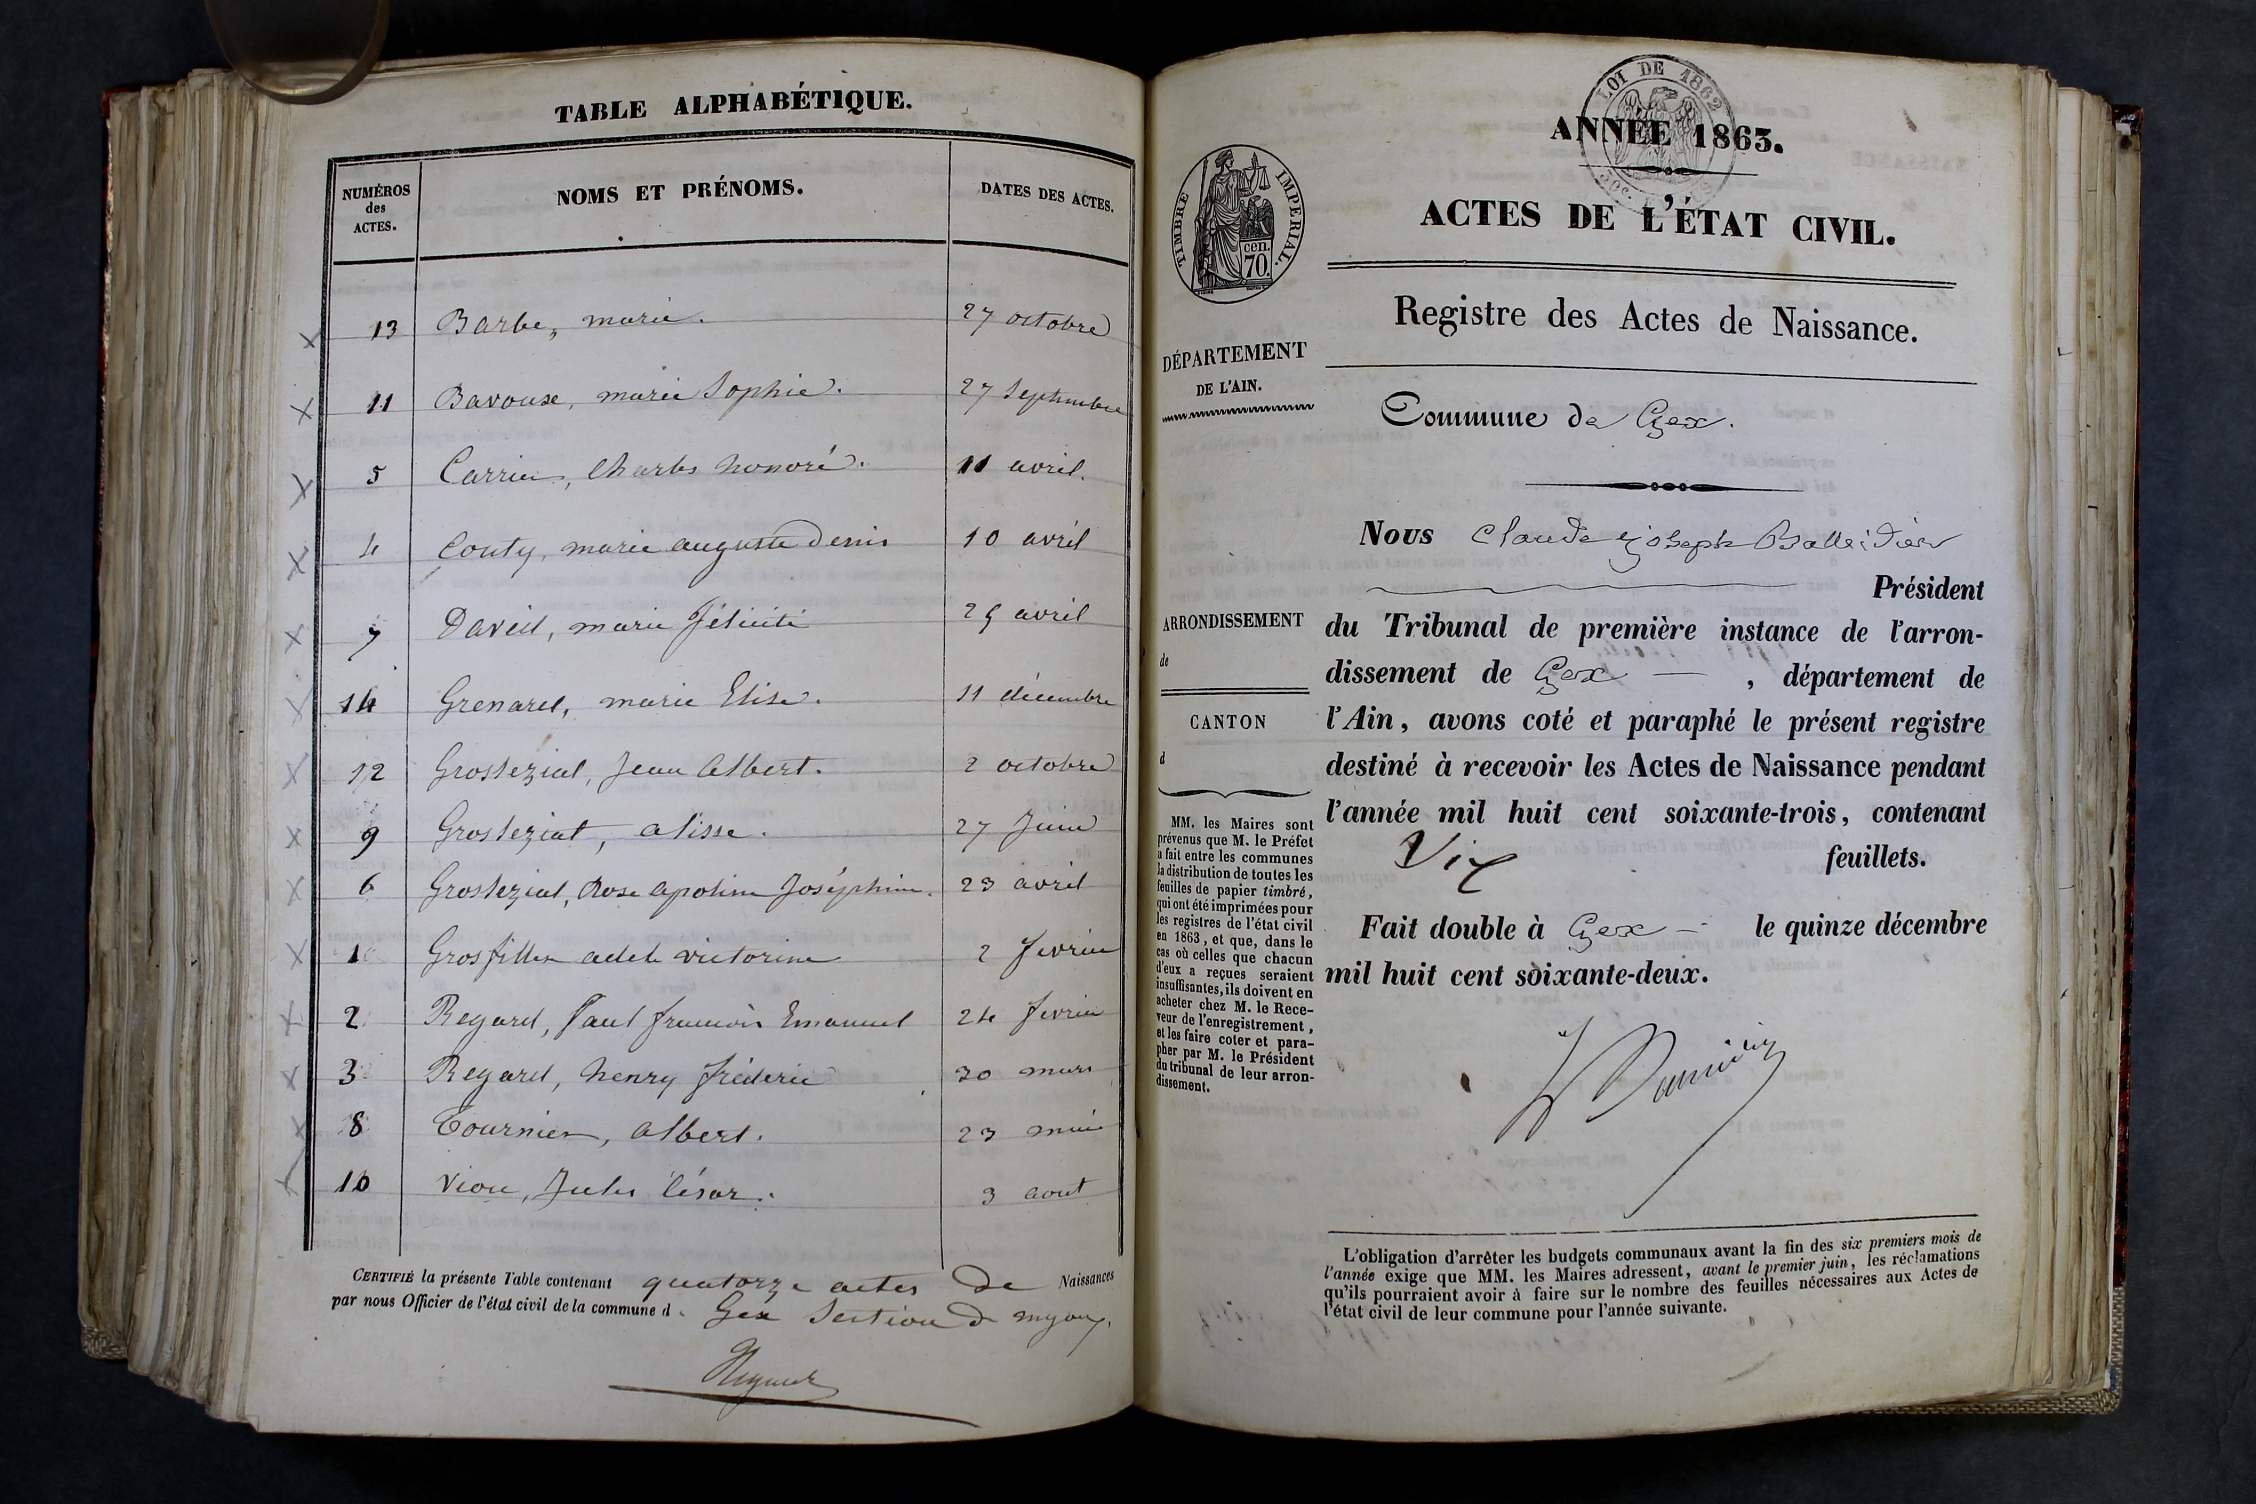 TABLE ALPHABÉTIQUE.
NUMÉROS des ACTES. NOMS ET PRÉNOMS. DATES DES ACTES.
13 Barbe, marie. 27 octobre
11 Bavoux, marie Sophie. 27 Septembre
5 Carrier, Charles honoré. 11 avril.
4 Couty, marie auguste Denis 10 avril
7 David, marie félicité 25 avril
14 Grenard, marie Elise. 11 décembre
12 Grosteziat, Jean Albert. 2 octobre
9 Grosteziat, alisse. 27 Juin
6 Grosteziat, Rose apoline Joséphine. 23 avril
1 Grosfiller adele victorine 2 fevrier
2 Regard, Paul francois Emanuel 24 fevrier
3 Regard, henry fréderic 30 mars
8 Tournier, albert. 23 mai
10 Viou, Jules César. 3 aout
CERTIFIÉ la présente Table contenant quatorze actes de Naissances
par nous Officier de l'état civil de la commune d Gex Section d
LOI DE 1862
ANNÉE 1863.
ACTES DE L'ÉTAT CIVIL.
TIMBRE IMPERIAL.
cen.
70.
Registre des Actes de Naissance.
DÉPARTEMENT
DE L'AIN.
Commune de Gex.
Nous Claude Joseph Balleidier
Président
ARRONDISSEMENT
de
CANTON
d
du Tribunal de première instance de l'arron-
dissement de Gex — , département de
l'Ain, avons coté et paraphé le présent registre
destiné à recevoir les Actes de Naissance pendant
l'année mil huit cent soixante-trois, contenant
feuillets.
Fait double à Gex — le quinze décembre
mil huit cent soixante-deux.
MM. les Maires sont
prévenus que M. le Préfet
a fait entre les communes
la distribution de toutes les
feuilles de papier timbré,
qui ont été imprimées pour
les registres de l'état civil
en 1863, et que, dans le
cas où celles que chacun
d'eux a reçues seraient
insuffisantes, ils doivent en
acheter chez M. le Rece-
veur de l'enregistrement,
et les faire coter et para-
pher par M. le Président
du tribunal de leur arron-
dissement.
L'obligation d'arrêter les budgets communaux avant la fin des six premiers mois de
l'année exige que MM. les Maires adressent, avant le premier juin, les réclamations
qu'ils pourraient avoir à faire sur le nombre des feuilles nécessaires aux Actes de
l'état civil de leur commune pour l'année suivante.